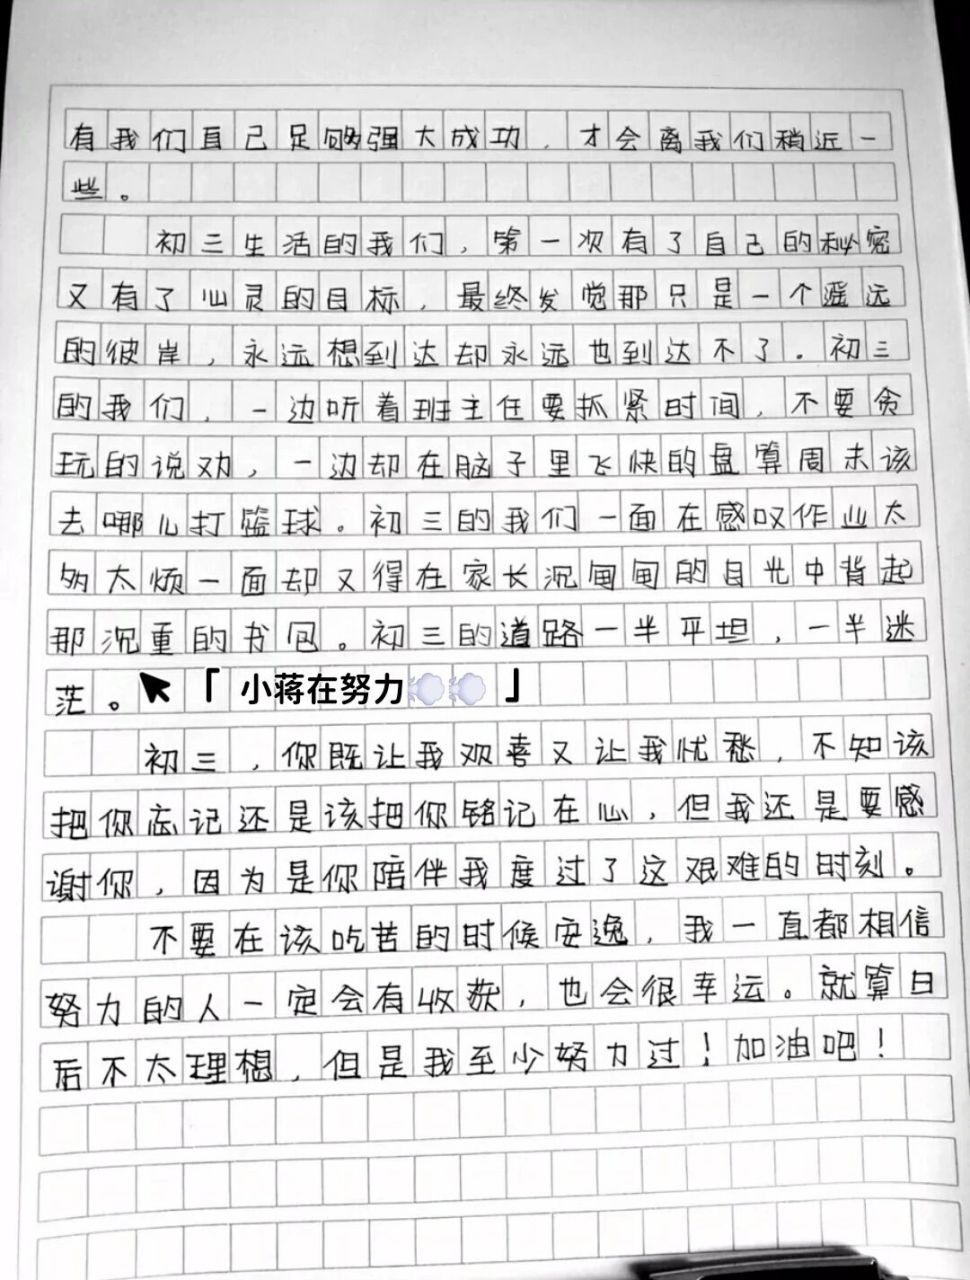 有我们自己足够强大成功，才会离我们稍近一
些。
初三生活的我们，第一次有了自己的秘密
又有了心灵的目标，最终发觉那只是一个遥远
的彼岸，永远想到达却永远也到达不了。初三
的我们，一边听着班主任要抓紧时间，不要贪
玩的说劝，一边却在脑子里飞快的盘算周末该
去哪儿打篮球。初三的我们一面在感叹作业太
多太烦一面却又得在家长沉甸甸的目光中背起
那沉重的书包。初三的道路一半平坦，一半迷
茫。
「小蒋在努力💨💨」
初三，你既让我欢喜又让我忧愁，不知该
把你忘记还是该把你铭记在心，但我还是要感
谢你，因为是你陪伴我度过了这艰难的时刻。
不要在该吃苦的时候安逸，我一直都相信
努力的人一定会有收获，也会很幸运。就算日
后不太理想，但是我至少努力过！加油吧！